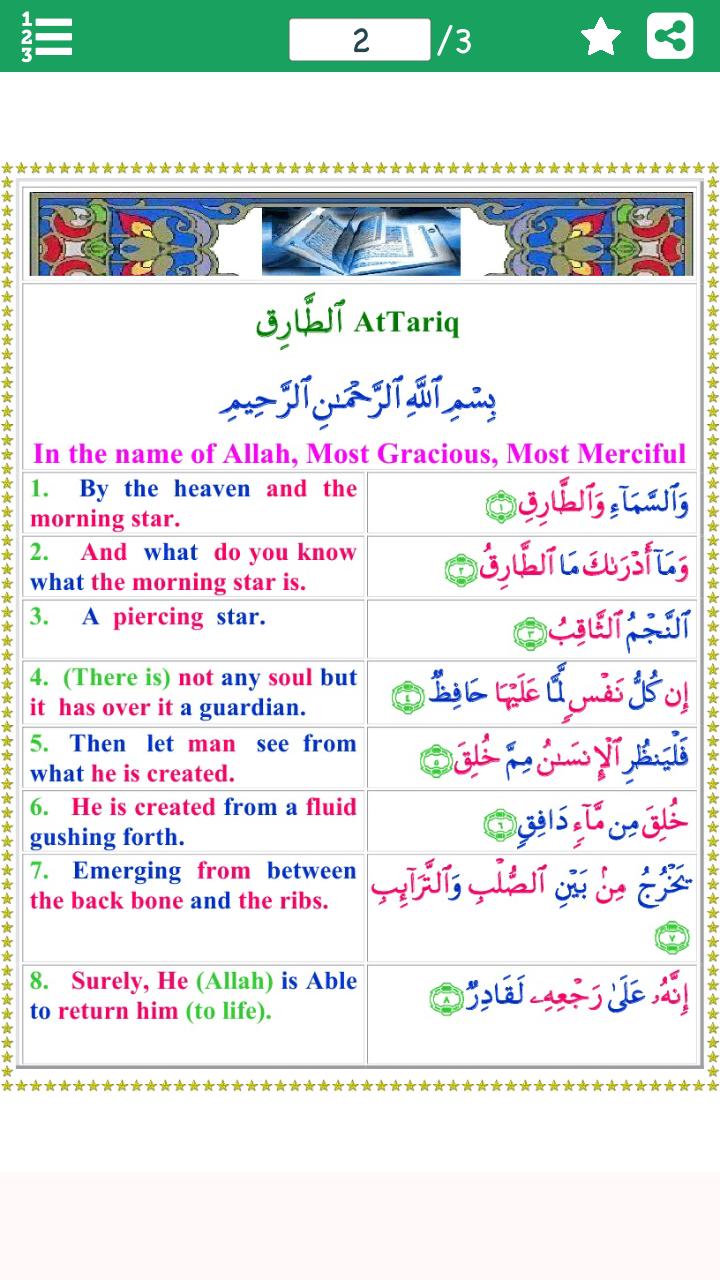 1
2
3
2 /3
ٱلطَّارِق AtTariq
بِسْمِ ٱللَّهِ ٱلرَّحْمَـٰنِ ٱلرَّحِيمِ
In the name of Allah, Most Gracious, Most Merciful
1. By the heaven and the
morning star.
وَٱلسَّمَآءِ وَٱلطَّارِقِ ١
2. And what do you know
what the morning star is.
وَمَآ أَدْرَىٰكَ مَا ٱلطَّارِقُ ٢
3. A piercing star.
ٱلنَّجْمُ ٱلثَّاقِبُ ٣
4. (There is) not any soul but
it has over it a guardian.
إِن كُلُّ نَفْسٍ لَّمَّا عَلَيْهَا حَافِظٌ ٤
5. Then let man see from
what he is created.
فَلْيَنظُرِ ٱلْإِنسَـٰنُ مِمَّ خُلِقَ ٥
6. He is created from a fluid
gushing forth.
خُلِقَ مِن مَّآءٍ دَافِقٍ ٦
7. Emerging from between
the back bone and the ribs.
يَخْرُجُ مِنۢ بَيْنِ ٱلصُّلْبِ وَٱلتَّرَآئِبِ
٧
8. Surely, He (Allah) is Able
to return him (to life).
إِنَّهُۥ عَلَىٰ رَجْعِهِۦ لَقَادِرٌ ٨